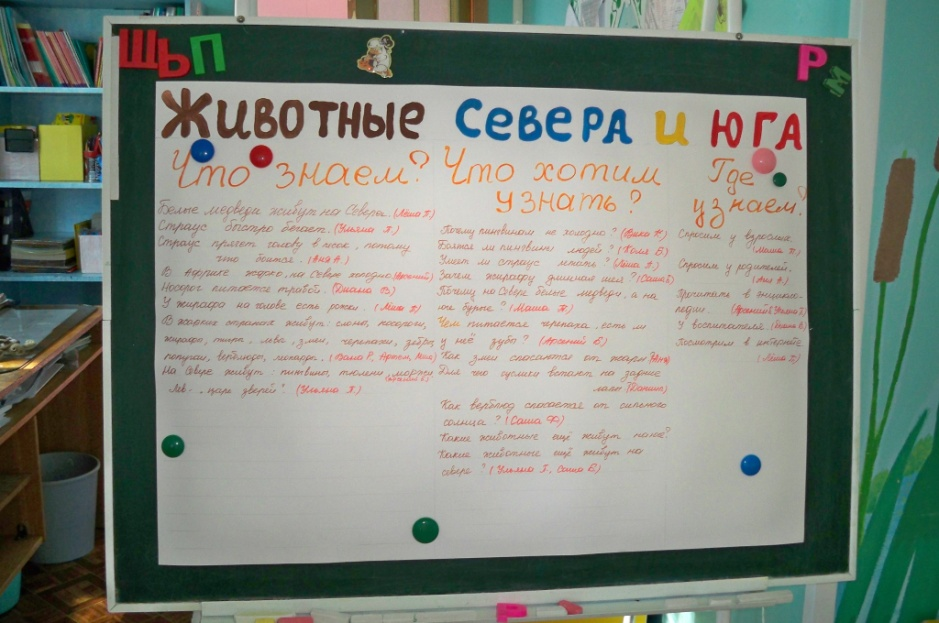 Щ Ь П
Р М
Животные севера и юга
Что знаем?
Белые медведи живут на Севере. (Маша П)
Страус быстро бегает. (Ульяна Г.)
Страус прячет голову в песок, потому
что боится. (Аня А.)
В африке жарко, на Севере холодно (Арсений)
Носорог питается травой. (Диана В)
У жирафа на голове есть рожки. (Маша П)
В жарких странах живут: слоны, носороги,
жирафы, тигры, львы, змеи, черепахи, зебры,
попугаи, верблюды, гепарды. (Валя Р, Артём, Миа)
На Севере живут: пингвины, тюлени, моржи
(Арсений Б)
Лев - "царь зверей". (Ульяна Г.)
Что хотим
узнать?
Почему пингвинам не холодно?
Боятся ли пингвины людей? (Коля Б)
Умеет ли страус летать?
Зачем жирафу длинная шея? (Саша Б)
Почему на Севере белые медведи, а на
юге бурые? (Маша П.)
Чем питается черепаха, есть ли
у неё зубы? (Арсений Б)
Как змеи спасаются от жары? (Аня)
Для чего суслики встают на задние
лапы
Как верблюд спасается от сильного
солнца? (Саша Ф)
Какие животные ещё живут на юге?
Какие животные ещё живут на
севере? (Ульяна Г., Саша Б)
Где
узнаем?
Спросим у взрослых.
Маша П)
Спросим у родителей.
(Аня А.)
Прочитать в энцикло-
педии. (Арсений, Ульяна Г)
У воспитателя. (Саша Б)
Посмотрим в интернете.
(Маша П)
Р